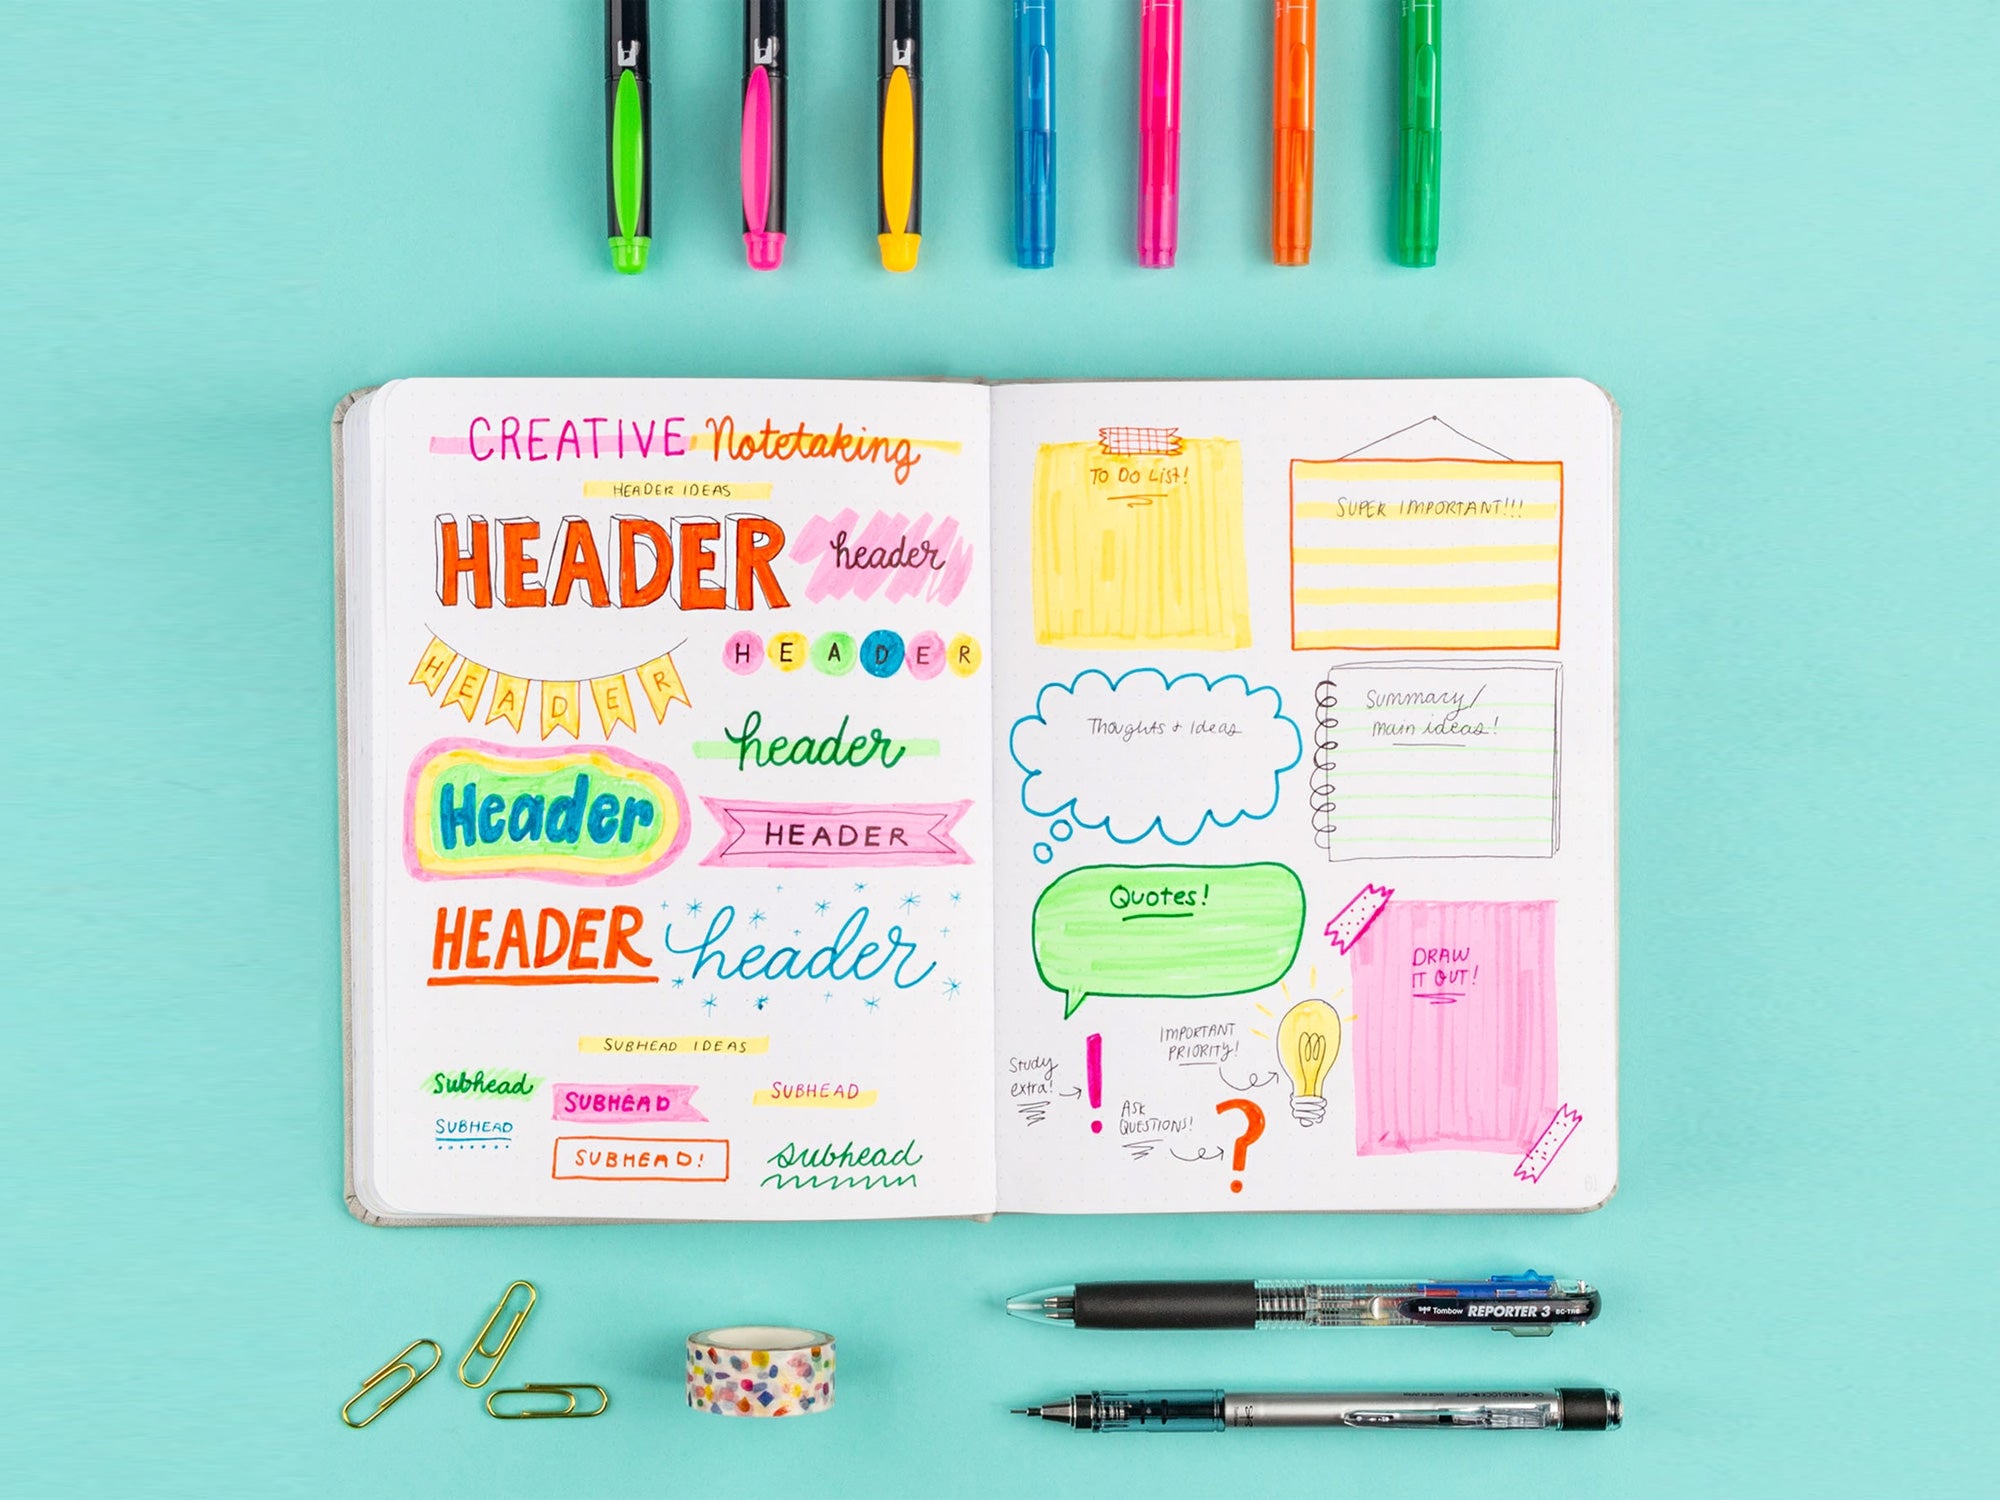 CREATIVE Notetaking
HEADER IDEAS
HEADER
header
HEADER
HEADER
header
Header
HEADER
HEADER
header
SUBHEAD IDEAS
Subhead
SUBHEAD
SUBHEAD
SUBHEAD
SUBHEAD!
subhead
TO DO LIST!
SUPER IMPORTANT!!!
Thoughts + Ideas
Summary/
main ideas!
Quotes!
DRAW
IT OUT!
IMPORTANT
PRIORITY!
Study
extra!
!
ASK
QUESTIONS!
?
61
Tombow REPORTER 3